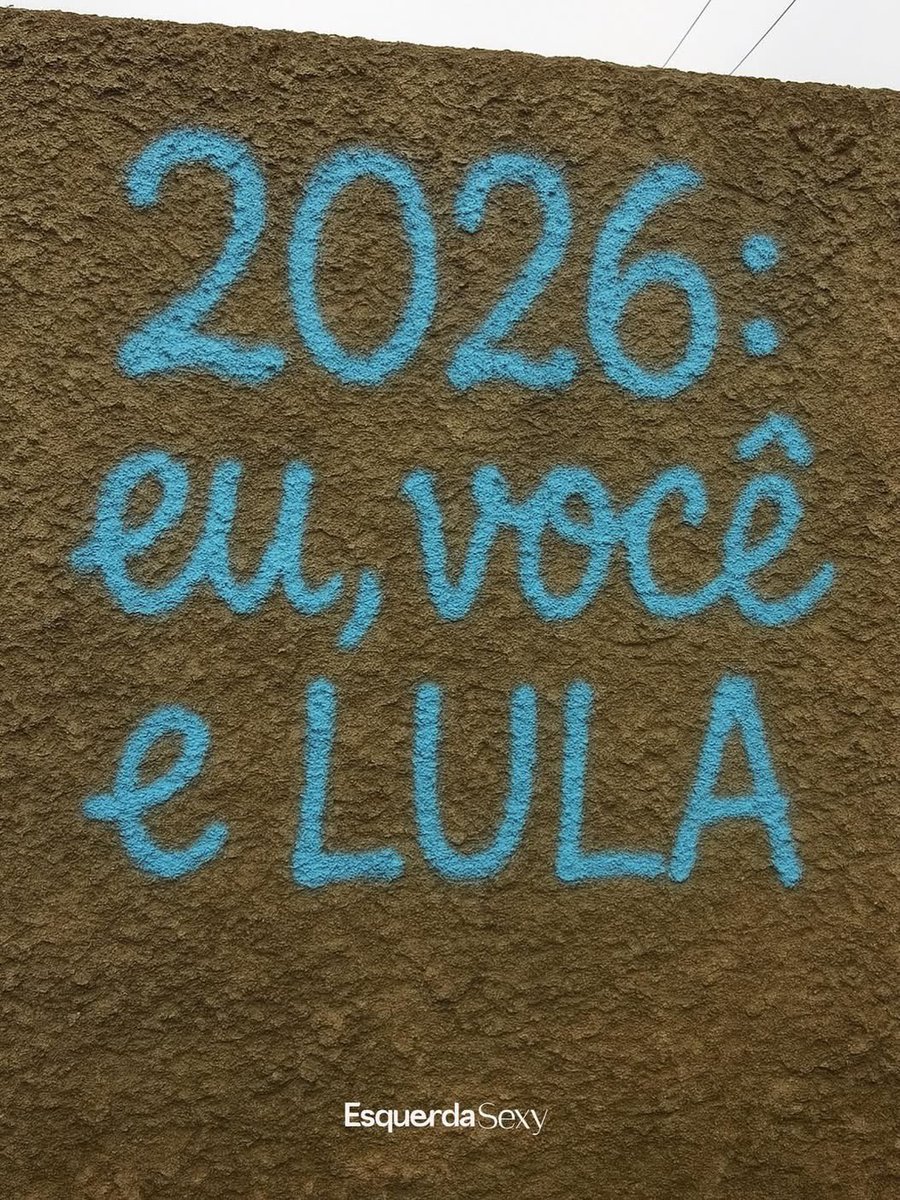 2026:
eu, você
e LULA
EsquerdaSexy